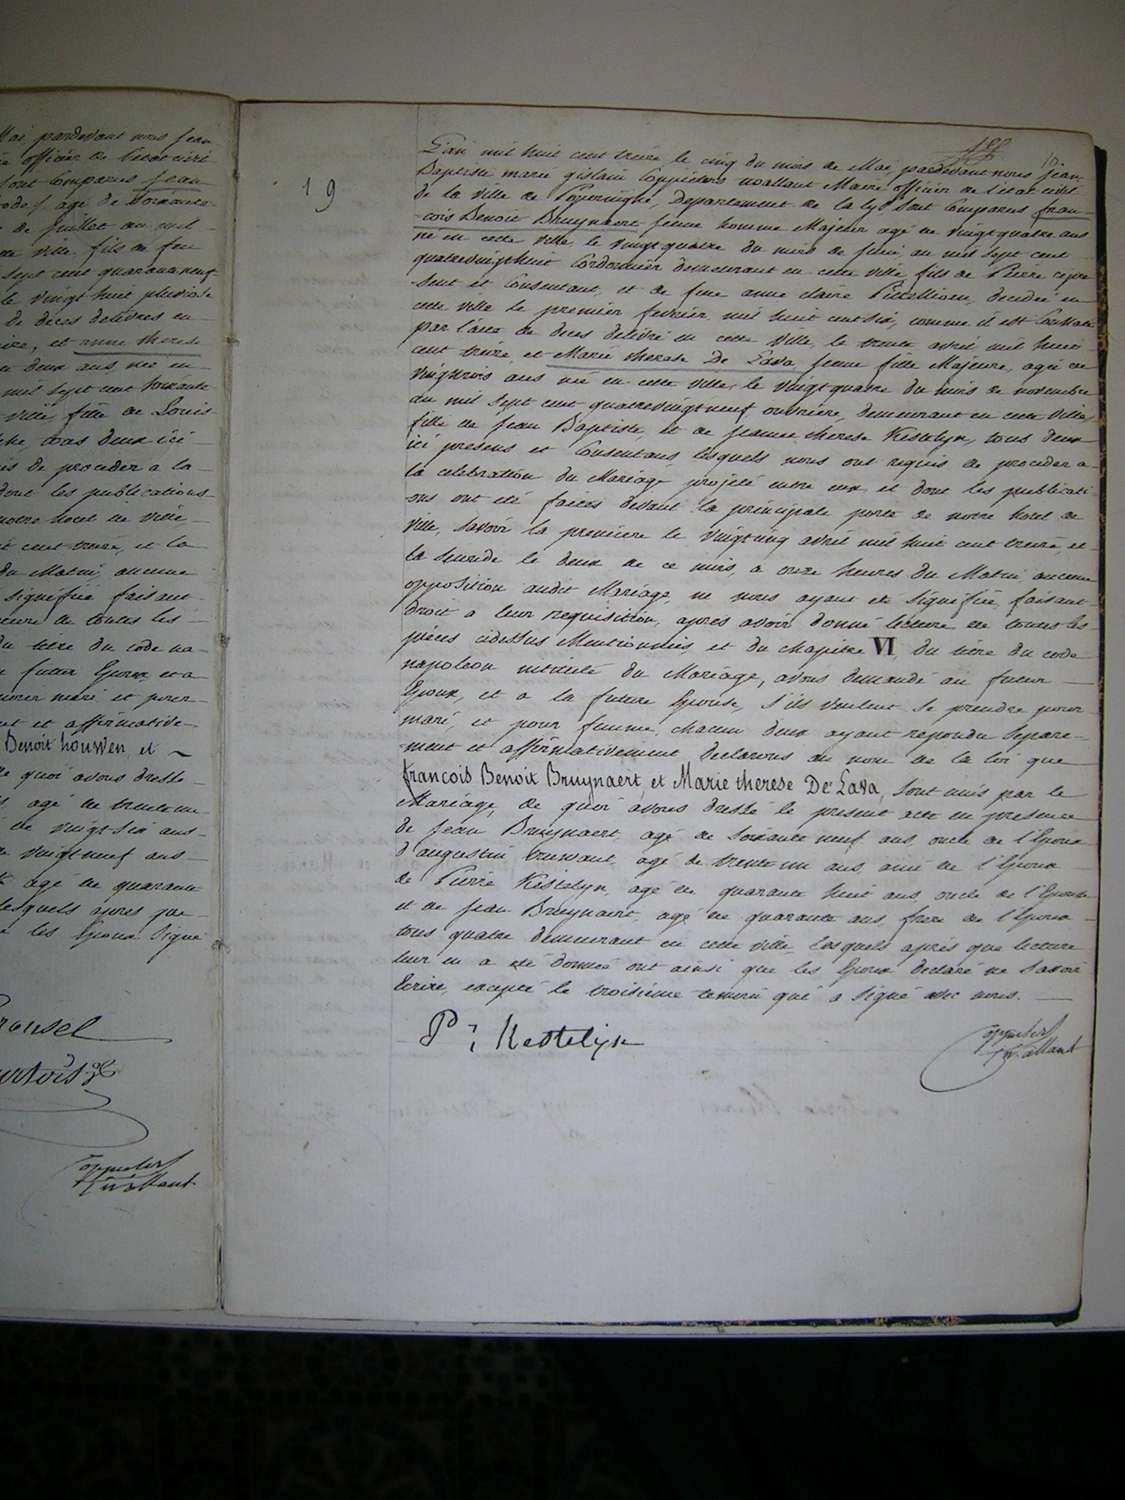 Mai pardevant nous Jean
officier de l'état civil
sont Comparus Jean
agé de soixante
de juillet au mil
ville fils de feu
sept cent quarante neuf
le vingt huit pluviose
de deces delivrés en
et anne therese
deux ans née en
mil sept cent soixante
ville fille de Louis
tous deux ici
de proceder a la
dont les publications
notre hotel de ville
cent treize, et la
du Matin, aucune
signifiée faisant
lecture de toutes les
du titre du code na-
futur Epoux et a
pour mari et pour
et affirmative-
Benoit houwen, et
de quoi avons dressé
agé de trente un
de vingt six ans
vingt neuf ans
agé de quarante
lesquels après que
les Epoux Signé
19
10
L'an mil huit cent treize le cinq du mois de Mai, pardevant nous Jean
Baptiste marie gislain Coppieters wallant Maire officier de l'état civil
de la ville de Poperinghe, Departement de la Lys sont Comparus fran-
cois Benoit Bruynaert jeune homme Majeur agé de vingtquatre ans
né en cette ville, le vingtquatre du mois de juin, au mil sept cent
quatrevingthuit Cordonnier demeurant en cette ville fils de Pierre ci pre
sent et Consentant, et de feue anne claire decedée en
cette ville le premier fevrier, mil huit cent six, comme il est Constaté
par l'acte de deces delivré en cette ville, le trente avril mil huit
cent treize, et Marie therese De Lava jeune fille Majeure, agée de
vingttrois ans née en cette ville, le vingtquatre du mois de novembre
au mil sept cent quatrevingtneuf ouvrière, demeurant en cette ville,
fille de Jean Baptiste, et de jeanne therese Kestelyn, tous deux
ici presens et Consentans, lesquels nous ont requis de proceder a
la celebration du Mariage projeté entre eux et dont les publicati-
ons ont été faites devant la principale porte de notre hotel de
ville, Savoir la premiere le vingtcinq avril mil huit cent treize, et
la seconde le deux de ce mois, a onze heures du Matin aucune
opposition audit Mariage, ne nous ayant été signifiée, faisant
droit a leur requisition, apres avoir donné lecture de toutes les
pièces cidessus Mentionnées et du Chapitre VI du titre du code
napoleon intitulé du Mariage, avons demandé au futur
Epoux, et a la future Epouse, s'ils veulent se prendre pour
mari, et pour femme, chacun deux ayant repondu Separe-
ment et affirmativement declarons au nom de la loi que
francois Benoit Bruynaert, et Marie therese De Lava, sont unis par le
Mariage, de quoi avons dressé le present acte en presence
de Jean Bruynaert agé de soixante neuf ans, oncle de l'Epoux
d'augustin agé de trente un ans, ami de l'Epoux
de Pierre Kestelyn agé de quarante huit ans, oncle de l'Epouse
et de Jean Bruynaert, agé de quarante ans, frere de l'Epoux
tous quatre demeurant en cette ville, lesquels après que lecture
leur en a été donnée ont ainsi que les Epoux declaré ne savoir
Ecrire, excepté le troisième temoin qui a signé avec nous.
Pr Kestelijn
Coppieters
wallant
Coppieters
wallant